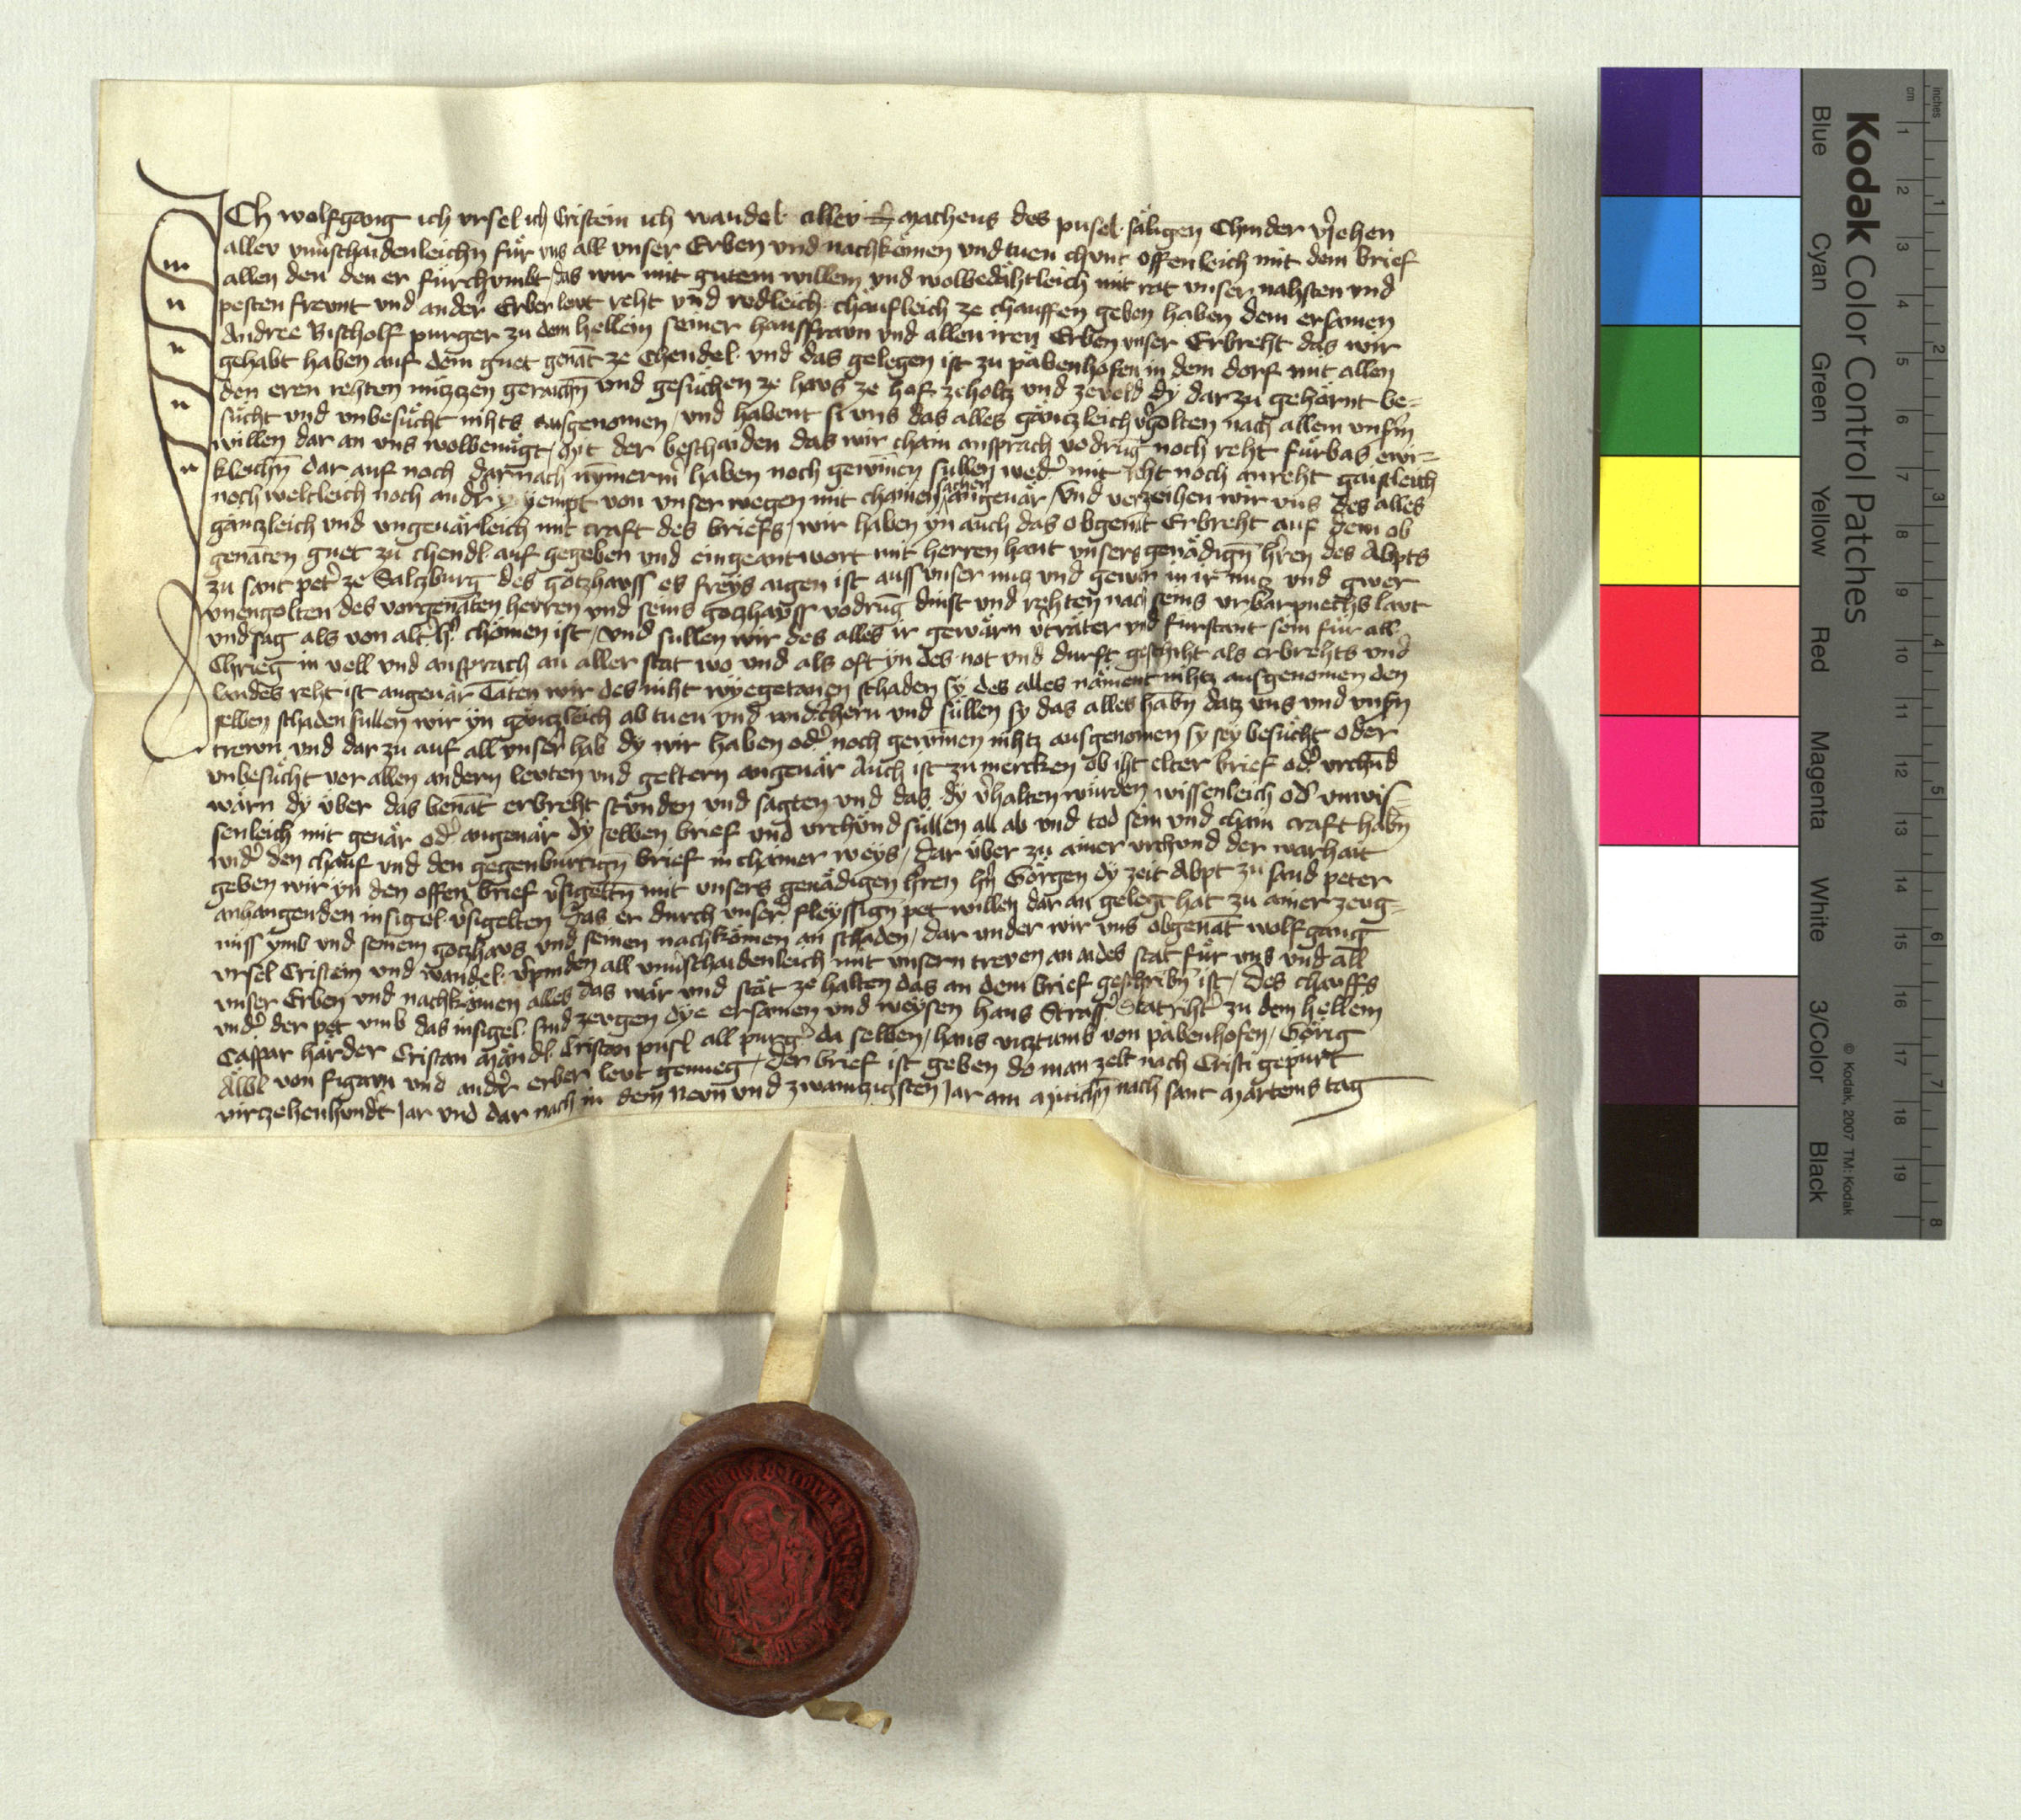 ICh wolfgang ich vrsel ich Cristein ich wandel aller matheus des pusel säligen Chinder v̉iehen
aller vnu̕schaidenleichn̄ für vns all vnser Erben vnd nachkömen vnd tuen chunt offenleich mit dem brief
allen den den er fürchvmbt / das wir mit gutem willem vnd wolbedähtleich mit rat vnser nahsten vnd
pesten frevnt vnd ander̉ Erber levt reht vnd redleich chaufleich ze chauffen geben haben dem ersamen
Andree Bischolf purger zu dem hellein seiner hausfravn vnd allen iren Erben vnser Erbreht das wir
gehabt haben auf dem guet genāt ze Chendel und das gelegen ist zu päbenhofen in dem dorf mit allen
den eren rehten nützzen geraichn̄ und gesüchen ze havs ze hof ze holtz und ze veld dy dar zu gehörnt be=
sücht und unbesücht nihts ausgenomen / und habent si vns das alles gäntzleich v̉golten nach allem vnsn̄
willen dar an vns wolbenügt / Mit der beschaiden das wir chain ansprach vodrūg noch reht fürbas ewi=
kleichn̄ dar auf noch darnach nÿmermer haben noch gewinnen sullen wed̉ mit reht noch anreht gaistleich
noch weltleich noch ander̉ yemant von vnser wegen mit chainen sachen angeuär / Vnd verzeihen wir vns des alles
gäntzleich vnd vngeuärleich mit craft des briefs / wir haben yn auch das obgenāt Erbreht auf dem ob
genāten guet zu chendl auf gegeben vnd eingeantwort mit herren hant vnsers genädign̄ hr̄en des Abpts
zu sant pet̉ ze Salczburg des gotzhauss es freys aigen ist auss vnser nutz vnd gewer in ir nutz vnd gwer
vnengolten des vorgenāten herren vnd seins gotzhauss vodrūg dinst vnd rehten nach seins vrbarpuechs lavt
vnd sag als von alt̉ h̉ chömen ist / vnd sullen wir des alles ir gewärn v̉träter vnd fürstant sein für all
Chrieg in vell vnd ansprach an aller stat wo vnd als oft yn des not vnd durft geschiht als erbrehts vnd
landes reht ist angeuär Täten wir des niht wyegetanen schaden sy des alles näment nihtz ausgenomen den
selben schaden sullen wir yn gäntzleich ab tuen vnd wid̉chern vnd süllen sy das alles habn̄ datz vns vnd vnsn̄
trewn vnd dar zu auf all vnser̉ hab dy wir haben od̉ noch gewinnen nihtz ausgenomen sy sey besücht oder
vnbesücht vor allen andern levten vnd geltern angeuär Auch ist zu mercken ob iht elter brief od̉ vrchūd
wärn dy über das benāt erbreht stünden vnd sagten vnd das dy v̉halten würden wissenleich od̉ vnwis=
senleich mit geuär od̉ angeuär dy selben brief vnd vrchünd süllen all ab vnd tod sein vnd chain craft habn̄
wid̉ den chauf vnd den gegenbürtign̄ brief in chainer weys / Dar über zu ainer vrchvnd der warhait
geben wir yn den offen brief v̉sigeltn̄ mit vnsers genädigen hr̄en hn̄ Görgen dy zeit Abpt zu sand peter
anhangenden insigel v̉sigelten Das er durch vnser̉ fleyssign̄ pet willen dar an gelegt hat zu ainer zeug=
niss ymb vnd seinem gotzhavs vnd seinen nachkömen an schaden / dar vnder wir vns obgenāt wolfgang
vrsel Cristein vnd wandel v̉pinden all vnu̕schaidenleich mit vnsern treven an aides stat für vns vnd all
vnser Erben vnd nachkömen alles das wär vnd stät ze halten das an dem brief geschribn̄ ist / Des chauffs
vnd̉ der pet vmb das insigel sind zevgen dye ersamen vnd weysen hans Strass̉ Statriht̉ zu dem hellein
Caspar härder Cristan mändl Cristan pusl all purg̉ da selben / hans vicztumb von päbenhofen / Görig
Älbl von figavn vnd ander̉ erber levt genueg / Der brief ist geben do man zelt nach Cristi gepurt
virczehenhundt̉ Jar vnd dar nach in dem Nevn vnd zwaintzigsten Jar am Mitichn̄ nach sant Martens tag
Kodak Color Control Patches
Blue Cyan Green Yellow Red Magenta White 3/Color Black
© Kodak, 2007 TM: Kodak
cm 1 2 3 4 5 6 7 8 9 10 11 12 13 14 15 16 17 18 19
inches 1 2 3 4 5 6 7 8